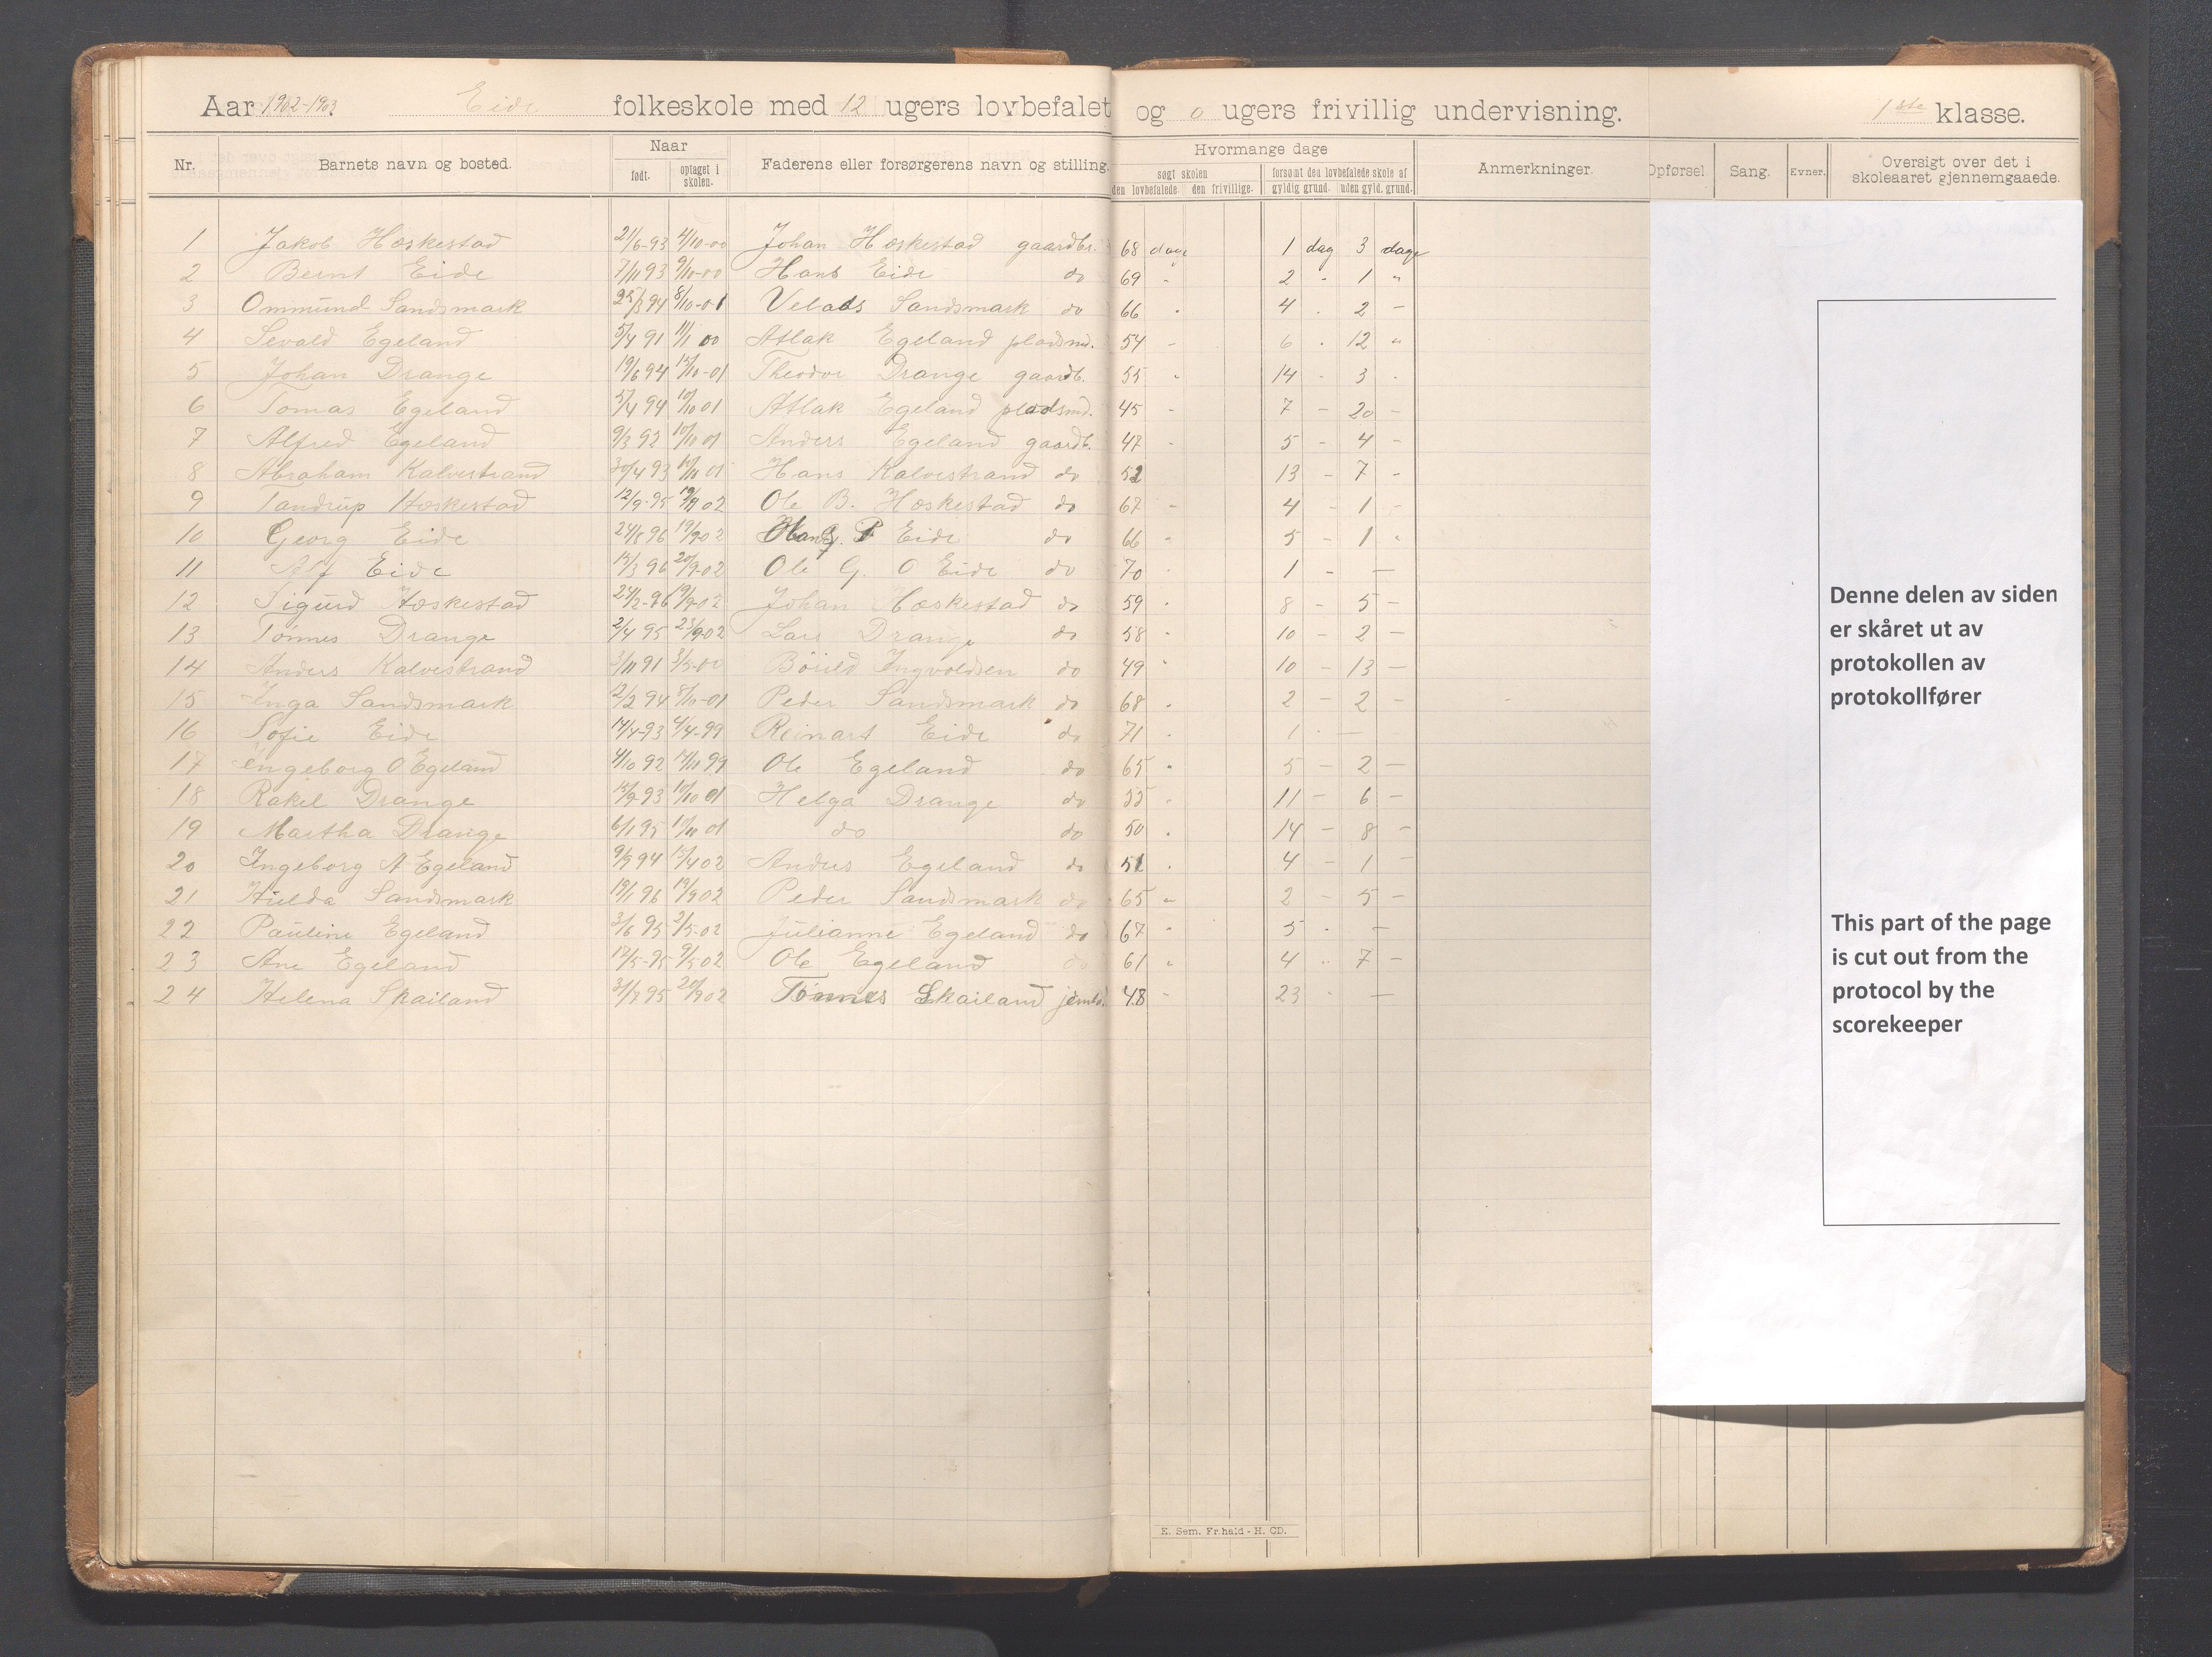 Aar 1902-1903. Eide folkeskole med 12 ugers lovbefalet og 0 ugers frivillig undervisning. 1ste klasse.
Nr. Barnets navn og bosted. Naar født. optaget i skolen. Faderens eller forsørgerens navn og stilling. Hvormange dage søgt skolen den lovbefalede. den frivillige. forsømt den lovbefalede skole af gyldig grund. uden gyld. grund. Anmerkninger. Opførsel. Sang. Evner. Oversigt over det i skoleaaret gjennemgaaede.
1 Jakob Hæskestad 21/6-93 4/10-00 Johan Hæskestad gaardbr. 68 dage 1 dag 3 dage
2 Bernt Eide 7/11 93 9/10-00 Hans Eide do 69 - 2 - 1 "
3 Ommund Sandsmark 25/3 94 8/10-01 Sandsmark do 66 - 4 - 2 -
4 Sevald Egeland 5/4 91 11/1 00 Atlak Egeland pladsmd. 54 - 6 - 12 "
5 Johan Drange 19/6 94 15/10-01 Theodor Drange gaardb. 55 - 14 - 3 -
6 Tomas Egeland 5/4 94 10/10 01 Atlak Egeland pladsmd. 45 - 7 - 20 -
7 Alfred Egeland 9/3 92 10/10 01 Anders Egeland gaardb. 47 - 5 - 4 -
8 Abraham Kalvestrand 30/4 93 11/11 01 Hans Kalvestrand do 52 13 - 7 -
9 Tandrup Hæskestad 12/9-95 19/9 02 Ole B. Hæskestad do 67 - 4 - 1 -
10 Georg Eide 24/8 96 19/9-02 Eide do 66 - 5 - 1 -
11 Alf Eide 15/3 96 20/9-02 Ole G. O Eide do 70 - 1 - —
12 Sigurd Hæskestad 24/2-96 19/9-02 Johan Hæskestad do 59 - 8 - 5 -
13 Tönnes Drange 2/4 95 23/9-02 Lars Drange do 58 - 10 - 2 -
14 Anders Kalvestrand 3/11 91 3/5-00 Ingvoldsen do 49 - 10 - 13 -
15 Inga Sandsmark 2/2 94 8/10-01 Peder Sandsmark do 68 - 2 - 2 -
16 Sofie Eide 14/4-93 4/4-99 Reinart Eide do 71 - 1 - —
17 Ingeborg O Egeland 4/10 92 14/11 99 Ole Egeland do 65 - 5 - 2 -
18 Rakel Drange 15/9-93 10/10 01 Helga Drange do 55 - 11 - 6 -
19 Martha Drange 6/1 95 11/11 01 do do 50 - 14 - 8 -
20 Ingeborg A Egeland 9/9 94 15/4 02 Anders Egeland do 51 - 4 - 1 -
21 Hulda Sandsmark 19/1 96 19/9 02 Peder Sandsmark do 65 - 2 - 5 -
22 Pauline Egeland 3/6 95 2/5-02 Julianne Egeland do 67 - 5 - —
23 Ane Egeland 12/5-95 9/5 02 Ole Egeland do 61 - 4 - 7 -
24 Helena Skailand 31/7 95 20/9 02 Tönnes Skailand 48 - 23 - —
Denne delen av siden
er skåret ut av
protokollen av
protokollfører
This part of the page
is cut out from the
protocol by the
scorekeeper
E. Sem. Fr.hald - H. CD.